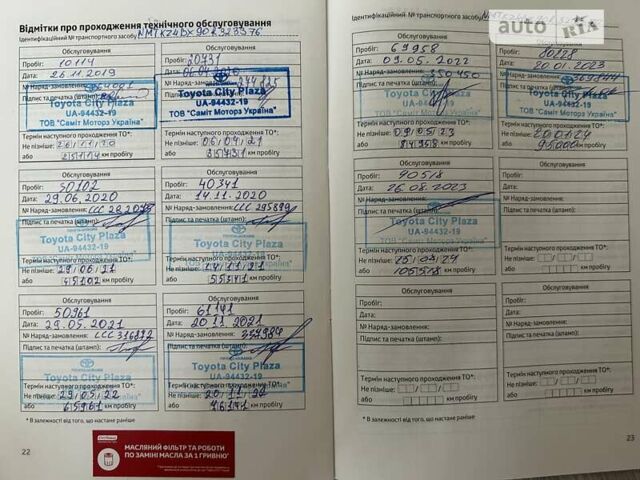 Відмітки про проходження технічного обслуговування
Ідентифікаційний № транспортного засобу
Обслуговування
Пробіг: 10114
Дата: 26.11.2019
№ Наряд-замовлення:
Підпис та печатка (штамп):
Toyota City Plaza
UA-94432-19
ТОВ "Саміт Моторз Україна"
Термін наступного проходження ТО*:
Не пізніше: 26/11/20
або км пробігу
Обслуговування
Пробіг: 20731
Дата:
№ Наряд-замовлення: 244825
Підпис та печатка (штамп):
Toyota City Plaza
UA-94432-19
ТОВ "Саміт Моторз Україна"
Термін наступного проходження ТО*:
Не пізніше: 06/04/21
або 35731 км пробігу
Обслуговування
Пробіг: 30102
Дата: 29.06.2020
№ Наряд-замовлення:
Підпис та печатка (штамп):
Toyota City Plaza
UA-94432-19
Термін наступного проходження ТО*:
Не пізніше: 29/06/21
або 45102 км пробігу
Обслуговування
Пробіг: 40341
Дата: 14.11.2020
№ Наряд-замовлення: CCC 295889
Підпис та печатка (штамп):
Toyota City Plaza
UA-94432-19
Термін наступного проходження ТО*:
Не пізніше: 14/11/21
або 55341 км пробігу
Обслуговування
Пробіг: 50961
Дата: 29.05.2021
№ Наряд-замовлення:
Підпис та печатка (штамп):
Toyota City Plaza
UA-94432-19
Термін наступного проходження ТО*:
Не пізніше: 29/05/22
або 65961 км пробігу
Обслуговування
Пробіг: 61141
Дата: 20.11.2021
№ Наряд-замовлення:
Підпис та печатка (штамп):
Toyota City Plaza
UA-94432-19
Термін наступного проходження ТО*:
Не пізніше: 20/11/22
або 76141 км пробігу
* В залежності від того, що настане раніше
22
МАСЛЯНИЙ ФІЛЬТР ТА РОБОТИ
ПО ЗАМІНІ МАСЛА ЗА 1 ГРИВНЮ*
Ідентифікаційний № транспортного засобу
auto RIA
Обслуговування
Пробіг: 69958
Дата: 09.05.2022
№ Наряд-замовлення: 350450
Підпис та печатка (штамп):
Toyota City Plaza
UA-94432-19
ТОВ "Саміт Моторз Україна"
Термін наступного проходження ТО*:
Не пізніше: 09/05/23
або 84958 км пробігу
Пробіг: 80128
Дата: 20.01.2023
№ Наряд-замовлення:
Toyota City Plaza
UA-94432-19
ТОВ "Саміт Моторз Україна"
Термін наступного проходження ТО*:
Не пізніше: 20/01/24
або км пробігу
Обслуговування
Пробіг: 90518
Дата: 26.08.2023
№ Наряд-замовлення:
Підпис та печатка (штамп):
Toyota City Plaza
UA-94432-19
ТОВ "Саміт Моторз Україна"
Термін наступного проходження ТО*:
Не пізніше:
або 105518 км пробігу
Обслуговування
Пробіг:
Дата:
№ Наряд-замовлення:
Підпис та печатка (штамп):
Термін наступного проходження ТО*:
Не пізніше:
або км пробігу
Обслуговування
Пробіг:
Дата:
№ Наряд-замовлення:
Підпис та печатка (штамп):
Термін наступного проходження ТО*:
Не пізніше:
або км пробігу
Обслуговування
Пробіг:
Дата:
№ Наряд-замовлення:
Підпис та печатка (штамп):
Термін наступного проходження ТО*:
Не пізніше:
або км пробігу
* В залежності від того, що настане раніше
23